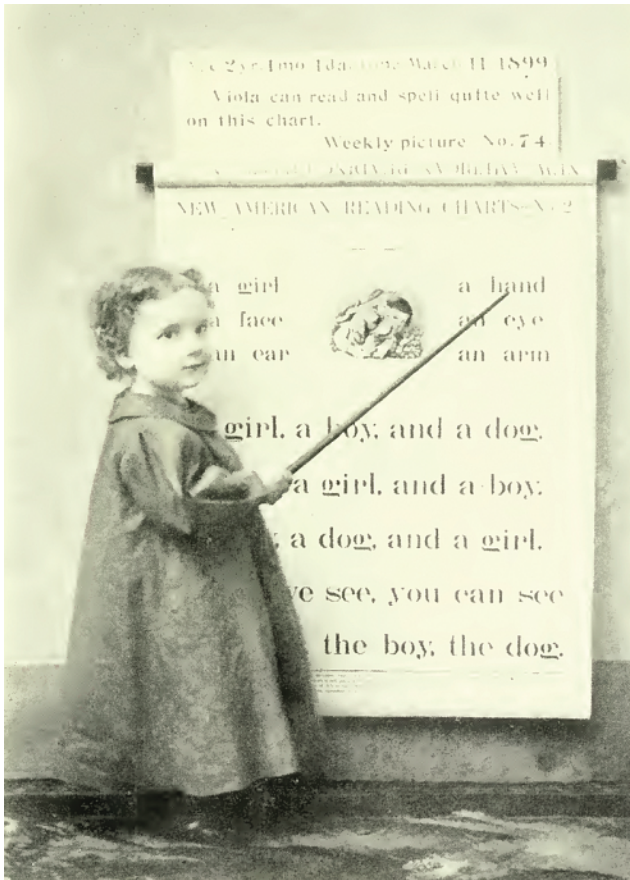 2 yr. 1 mo. 1 da. March 11 1899
Viola can read and spell quite well
on this chart.
Weekly picture No. 74
NEW AMERICAN READING CHARTS No. 2
a girl a hand
a face an eye
an ear an arm
girl, a boy, and a dog.
a girl, and a boy.
a dog, and a girl.
see, you can see
the boy, the dog.